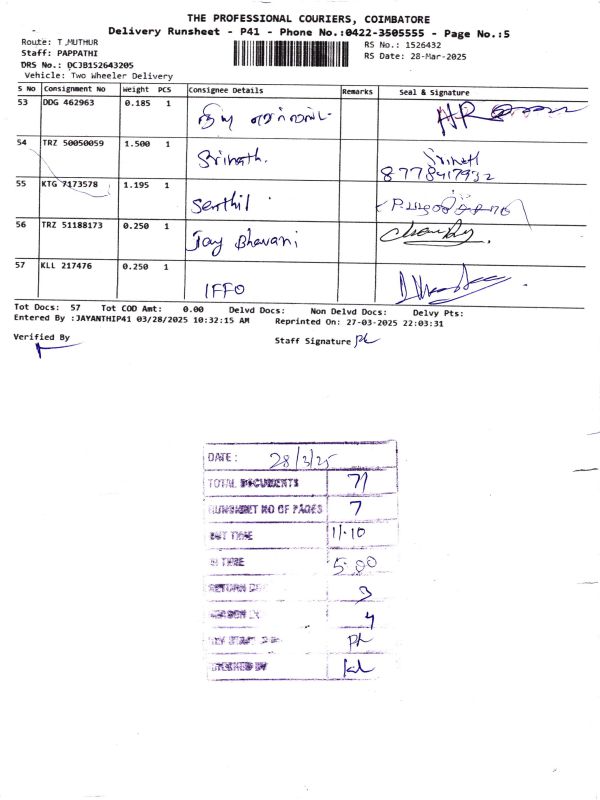 THE PROFESSIONAL COURIERS, COIMBATORE
Delivery Runsheet - P41 - Phone No.:0422-3505555 - Page No.:5
Route: T.MUTHUR
RS No.: 1526432
Staff: PAPPATHI
RS Date: 28-Mar-2025
DRS No.: DCJB152643205
Vehicle: Two Wheeler Delivery
S No Consignment No Weight PCS Consignee Details Remarks Seal & Signature
53 DDG 462963 0.185 1
54 TRZ 50050059 1.500 1 Srinath. Srinath
8778417932
55 KTG 7173578 1.195 1 Senthil
56 TRZ 51188173 0.250 1 Jay Bhavani
57 KLL 217476 0.250 1 IFFO
Tot Docs: 57 Tot COD Amt: 0.00 Delvd Docs: Non Delvd Docs: Delvy Pts:
Entered By :JAYANTHIP41 03/28/2025 10:32:15 AM Reprinted On: 27-03-2025 22:03:31
Verified By
Staff Signature
DATE: 28/3/25
TOTAL DOCUMENTS 71
RUNSHEET NO OF PAGES 7
OUT TIME 11.10
IN TIME 5.00
3
4